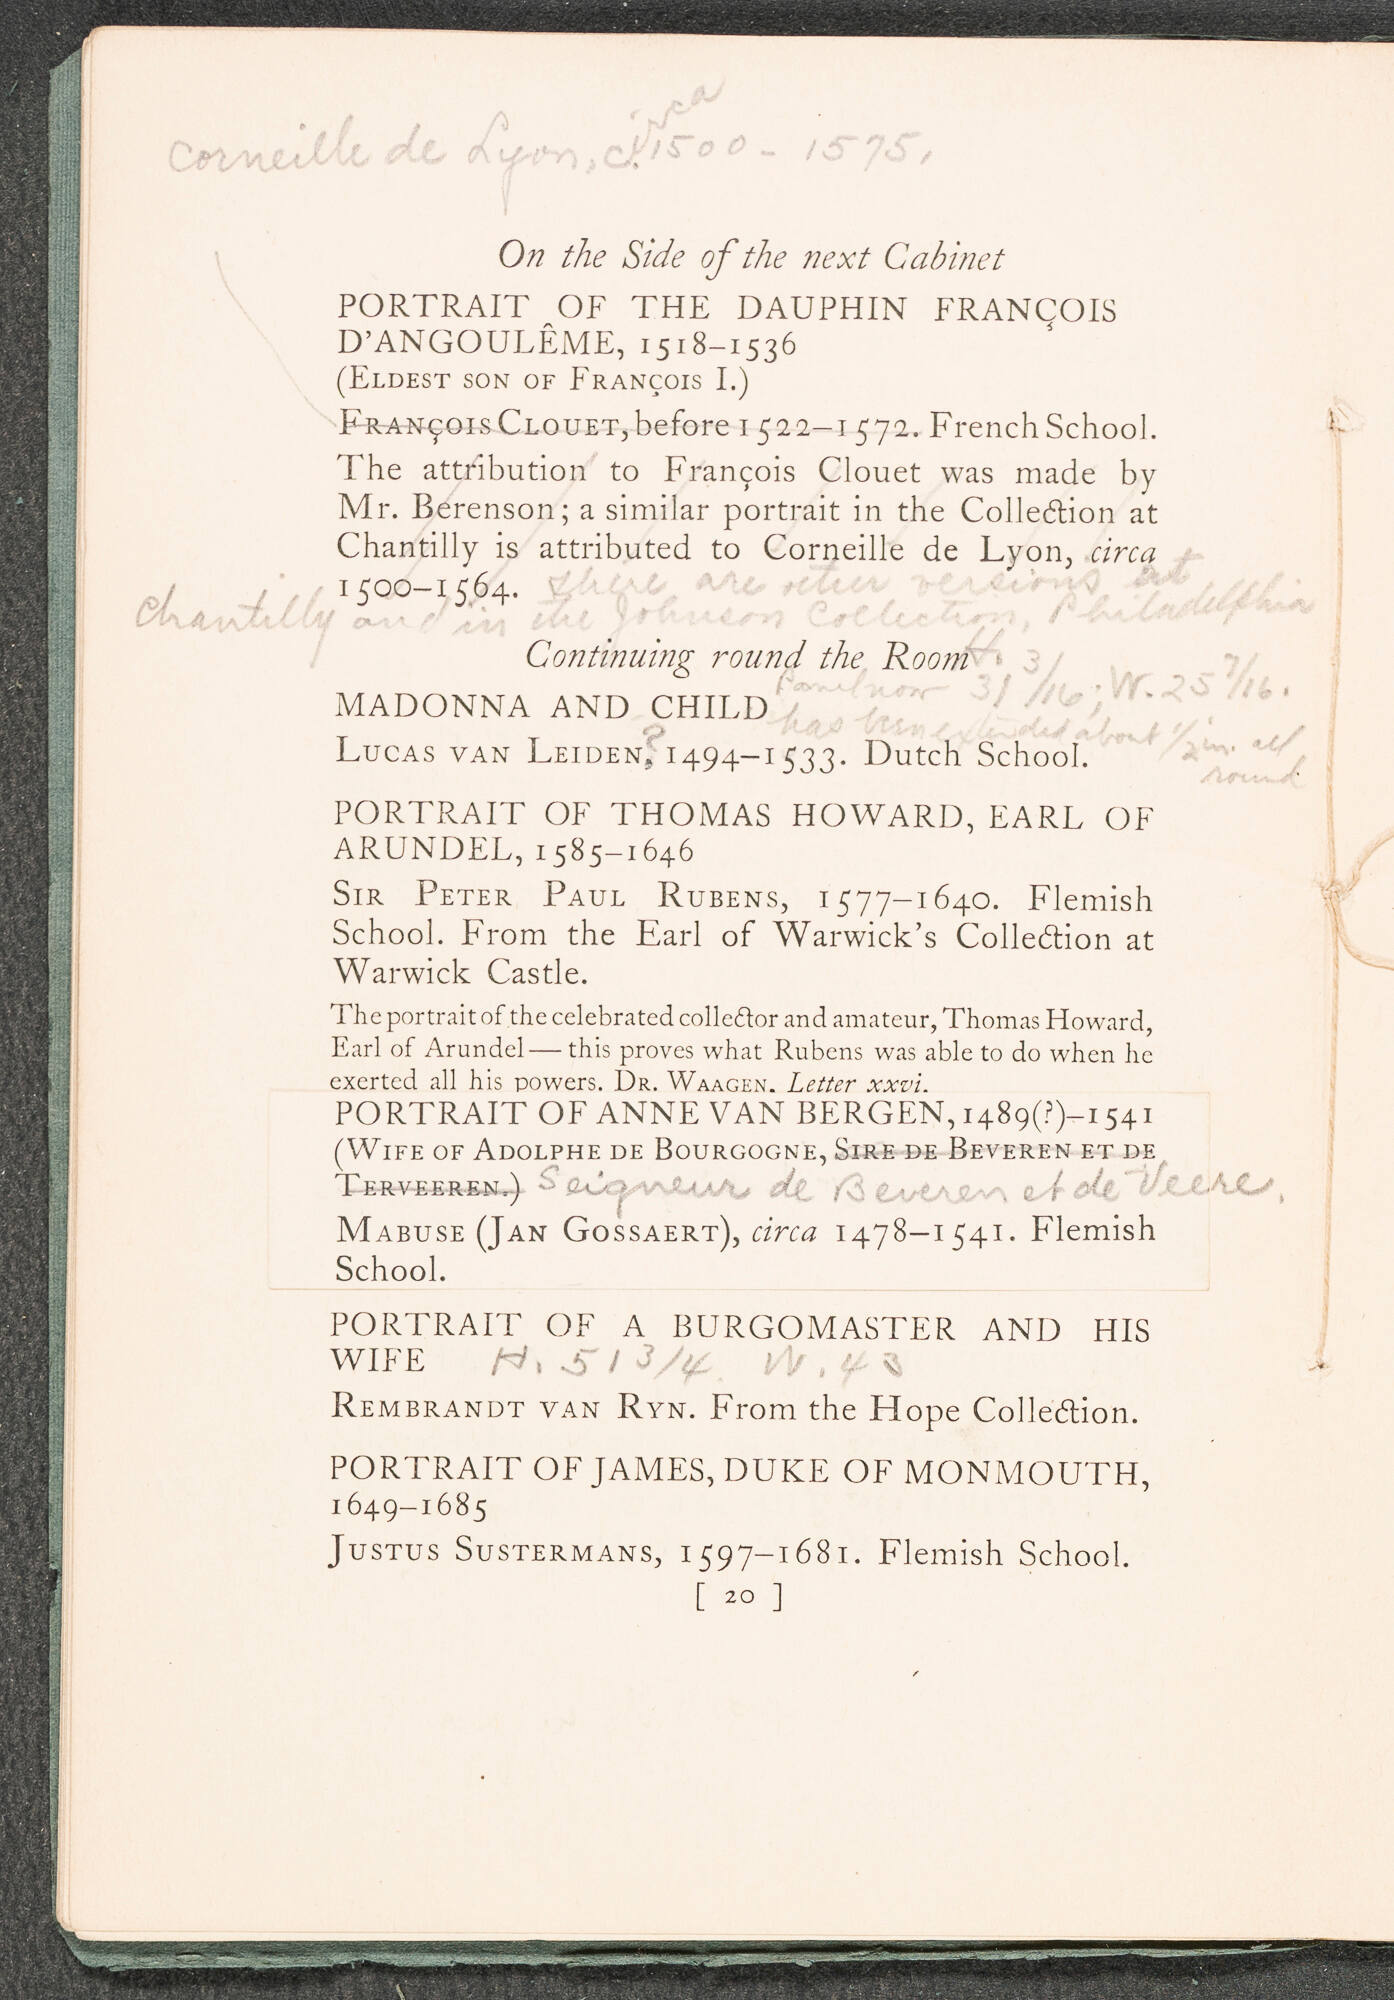 Corneille de Lyon, circa 1500 - 1575.
On the Side of the next Cabinet
PORTRAIT OF THE DAUPHIN FRANÇOIS
D'ANGOULÊME, 1518–1536
(ELDEST SON OF FRANÇOIS I.)
FRANÇOIS CLOUET, before 1522–1572. French School.
The attribution to François Clouet was made by
Mr. Berenson; a similar portrait in the Collection at
Chantilly is attributed to Corneille de Lyon, circa
1500–1564. There are other versions at
Chantilly and in the Johnson Collection, Philadelphia
Continuing round the Room
Panel now H. 31 3/16; W. 25 7/16.
MADONNA AND CHILD has been extended about 1/2 in. all
round
LUCAS VAN LEIDEN,? 1494–1533. Dutch School.
PORTRAIT OF THOMAS HOWARD, EARL OF
ARUNDEL, 1585–1646
SIR PETER PAUL RUBENS, 1577–1640. Flemish
School. From the Earl of Warwick's Collection at
Warwick Castle.
The portrait of the celebrated collector and amateur, Thomas Howard,
Earl of Arundel—this proves what Rubens was able to do when he
exerted all his powers. DR. WAAGEN. Letter xxvi.
PORTRAIT OF ANNE VAN BERGEN, 1489(?)–1541
(WIFE OF ADOLPHE DE BOURGOGNE, SIRE DE BEVEREN ET DE
TERVEEREN.) Seigneur de Beveren et de Veere.
MABUSE (JAN GOSSAERT), circa 1478–1541. Flemish
School.
PORTRAIT OF A BURGOMASTER AND HIS
WIFE H. 51 3/4 W. 43
REMBRANDT VAN RYN. From the Hope Collection.
PORTRAIT OF JAMES, DUKE OF MONMOUTH,
1649–1685
JUSTUS SUSTERMANS, 1597–1681. Flemish School.
[ 20 ]